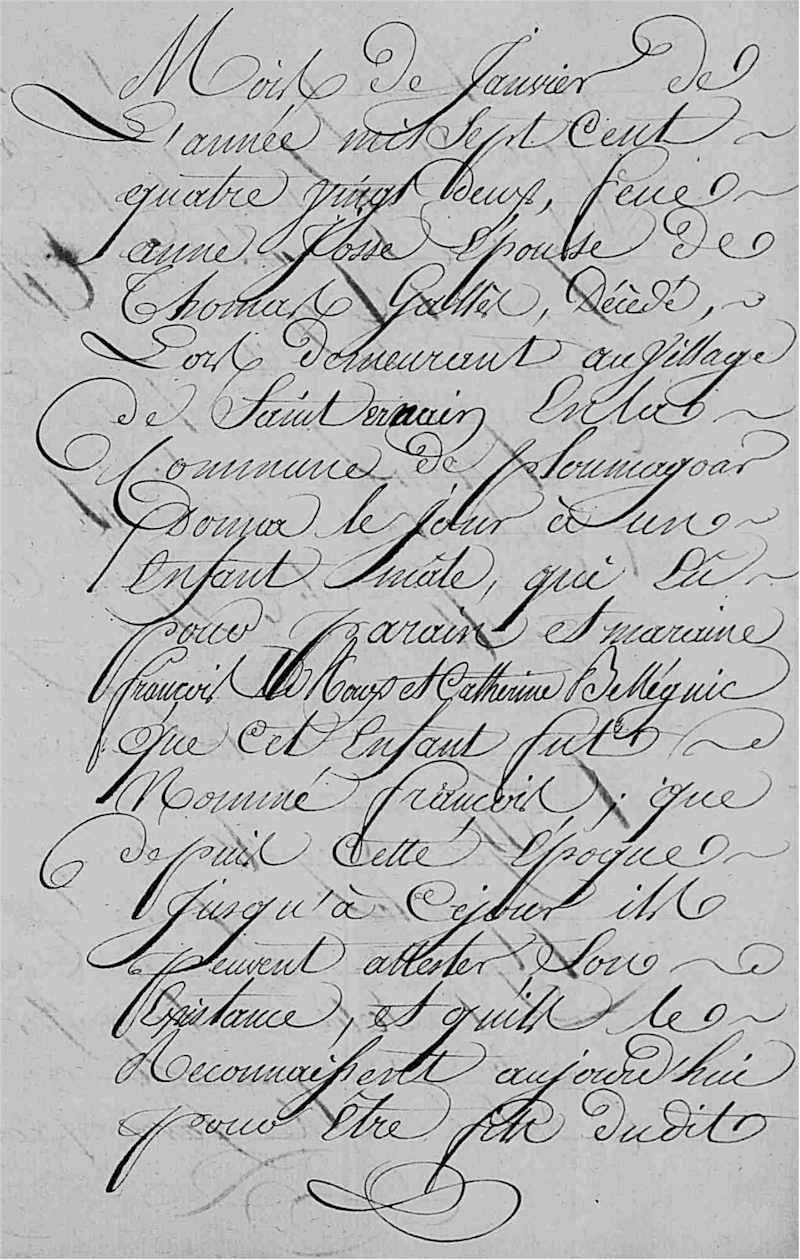 Mois de Janvier de
L'année mil Sept Cent
quatre vingt deux, feue
anne Josse Epouse de
Thomas Galles, Décedé,
Lors demeurant au village
de Saint Ernain En la
Commune de Ploumagoar
Donna le jour à un
Enfant mâle, qui Eû
pour parain et maraine
françois Le Roux et Catherine Belléguic
Que Cet Enfant fut
Nommé françois; que
depuis Cette Epoque
Jusqu'à Cejour ils
peuvent attester Son
Existance, et quils le
Reconnaissent aujourd'hui
pour Être fils dudit